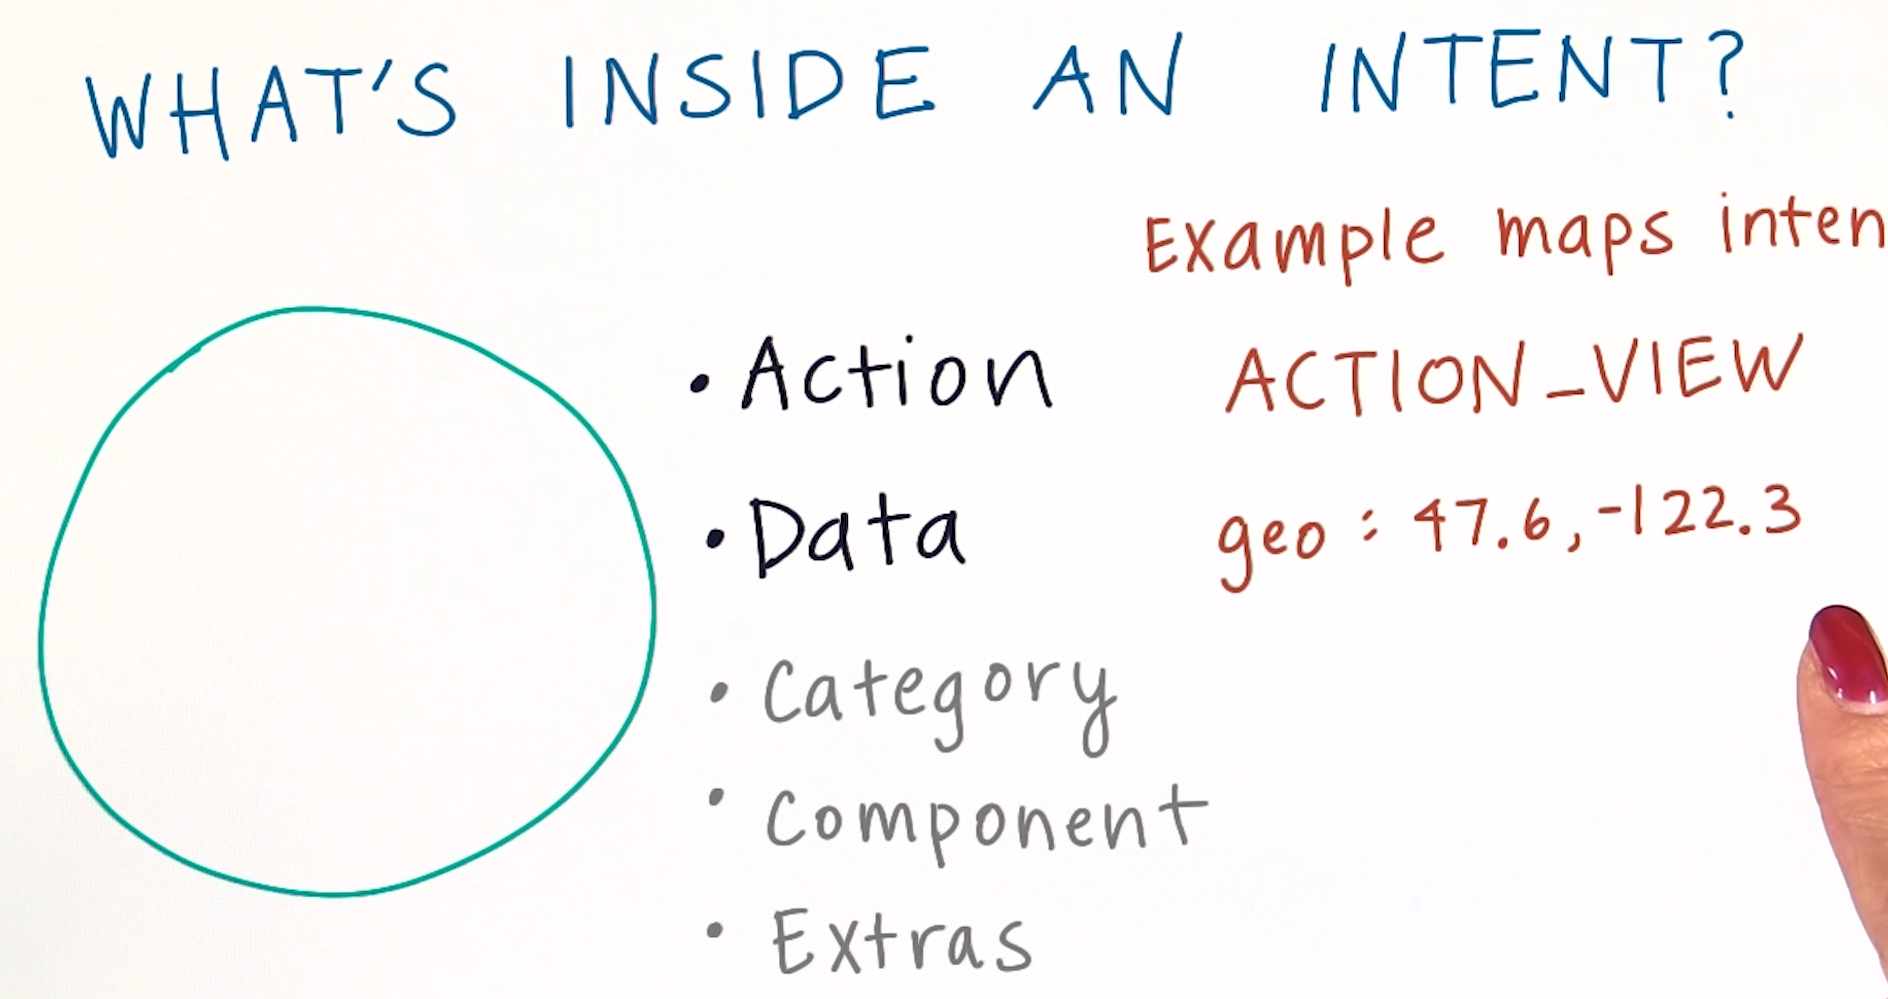 WHAT'S INSIDE AN INTENT?
Example maps inten
• Action ACTION_VIEW
• Data geo: 47.6,-122.3
• Category
• Component
• Extras